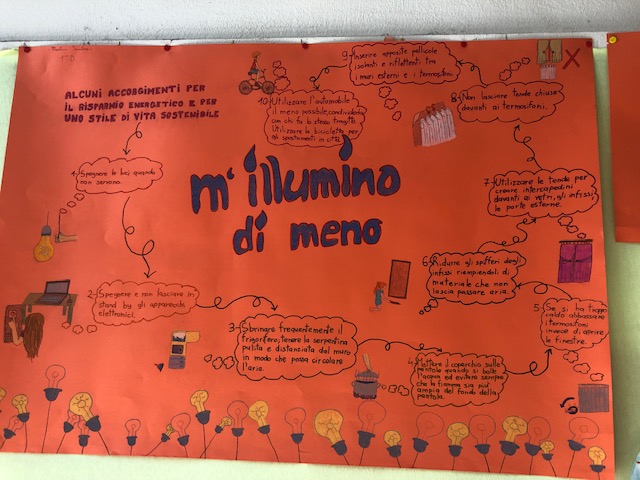 ALCUNI ACCORGIMENTI PER
IL RISPARMIO ENERGETICO E PER
UNO STILE DI VITA SOSTENIBILE
m'illumino
di meno
1- Spegnere le luci quando
non servono.
2- Spegnere e non lasciare in
stand by gli apparecchi
elettronici.
3- Sbrinare frequentemente il
frigorifero; tenere la serpentina
pulita e distanziata dal muro
in modo che possa circolare
l'aria.
4- Mettere il coperchio sulle
pentole quando si bolle
l'acqua ed evitare sempre
che la fiamma sia più
ampia del fondo della
pentola.
5- Se si ha troppo
caldo abbassare
i termosifoni
invece di aprire
le finestre.
6- Ridurre gli spifferi degli
infissi riempiendoli di
materiale che non
lascia passare aria.
7- Utilizzare le tende per
creare intercapedini
davanti ai vetri, gli infissi,
le porte esterne.
8- Non lasciare tende chiuse
davanti ai termosifoni.
9- Inserire apposite pellicole
isolanti e riflettenti tra
i muri esterni e i termosifoni
10- Utilizzare l'automobile
il meno possibile, condividerla
con chi fa lo stesso tragitto.
Utilizzare la bicicletta per
gli spostamenti in città.